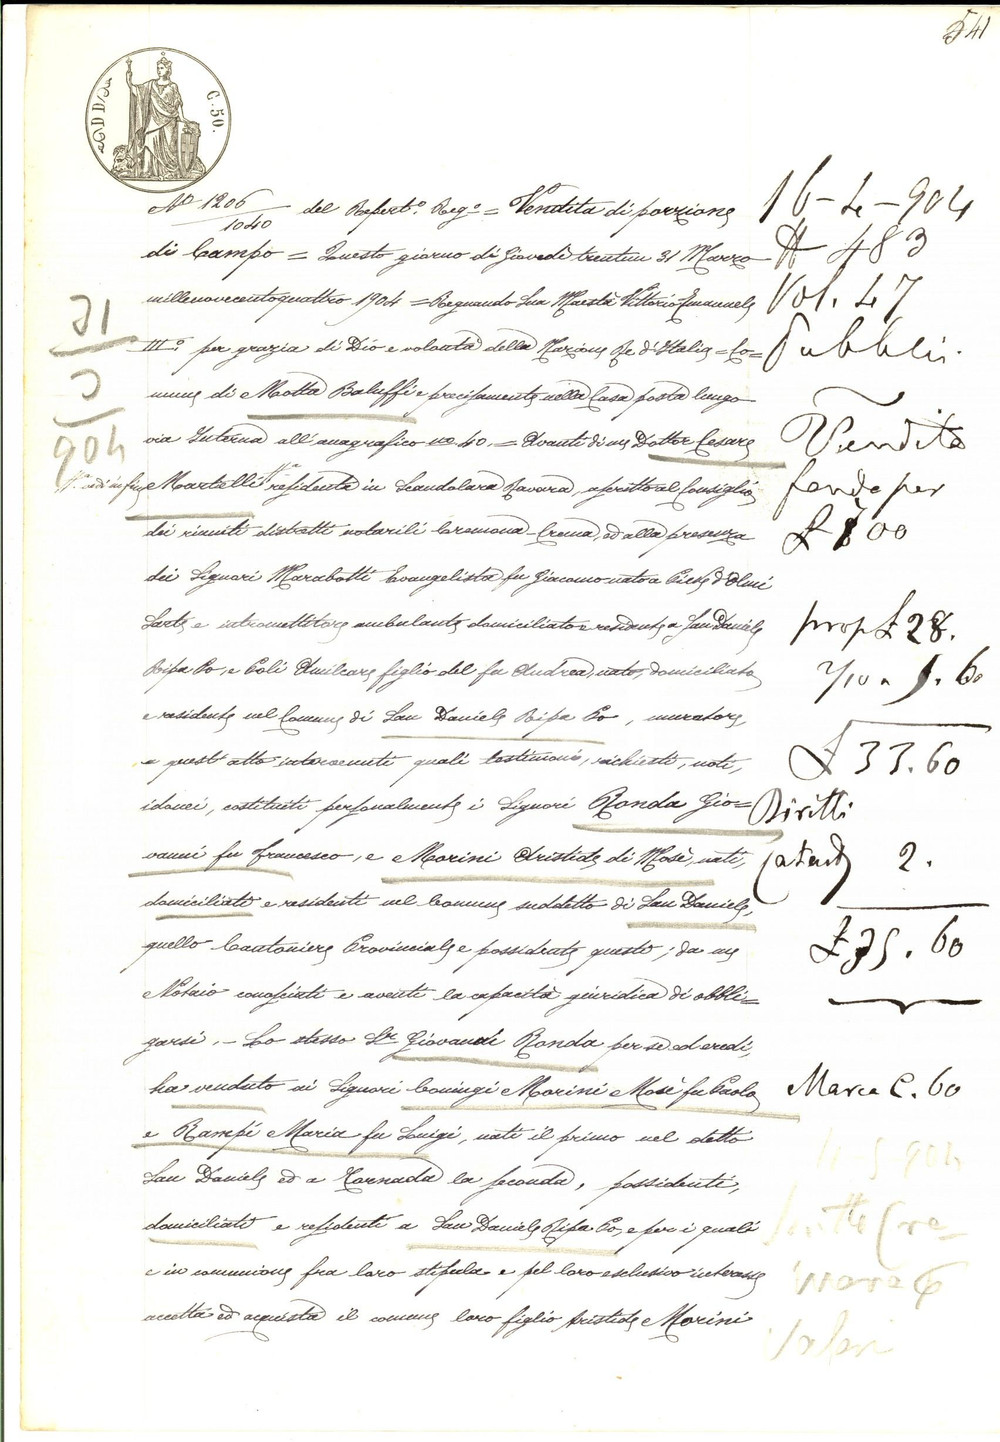 541
C. 50.
N° 1206/1040 del Repert°. Reg° = Vendita di porzione
di Campo = Questo giorno di Giovedì trentun 31 Marzo
millenovecentoquattro 1904 = Regnando Sua Maestà Vittorio Emanuele
III° per grazia di Dio e volontà della Nazione Re d'Italia = Co=
mune di Motta Baluffi e precisamente nella Casa posta lungo
via Interna all'anagrafico n° 40. = Avanti di me Dottor Cesare
Martelli Nº residente in Scandolara Ravara, ascritto al Consiglio
dei riuniti distretti notarili Cremona-Crema, ed alla presenza
dei Signori Marabotti Evangelista fu Giacomo nato a Pieve d'Olmi
Sarte e intromettitore ambulante domiciliato e residente a San Daniele
Ripa Po, e Poli Amilcare figlio del fu Andrea, nato, domiciliato
e residente nel Comune di San Daniele Ripa Po, muratore,
a quest'atto intervenuti quali testimoni, richiesti, noti,
idonei, costituiti personalmente i Signori Ronda Gio=
vanni fu Francesco, e Morini Aristide di Mosè, nati,
domiciliati e residenti nel Comune suddetto di San Daniele,
quello Cantoniere Provinciale e possidente questo; da me
Notaio conosciuti e aventi la capacità giuridica di obbli=
garsi. – Lo stesso Sr Giovanni Ronda per sè ed eredi,
ha venduto ai Signori Coniugi Morini Mosè fu Paolo
e Rampi Maria fu Luigi, nati il primo nel detto
San Daniele ed a Tornada la seconda, possidenti,
domiciliati e residenti a San Daniele Ripa Po, e per i quali
e in comunione fra loro stipula e pel loro esclusivo interesse
accetta ed acquista il comune loro figlio Aristide Morini
31
3
904
16-4-904
# 483
Vol. 47
Pubbli.
Vendita
fondo per
£ 700
prop £ 28.
2/10 " 5.60
£ 33.60
Diritti
Catast 2.
£ 35.60
Marca C. 60
11 5 904